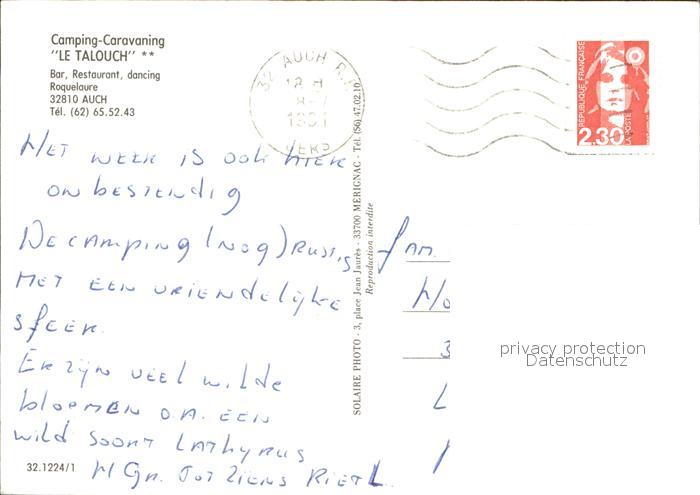 Camping-Caravaning
"LE TALOUCH" **
Bar, Restaurant, dancing
Roquelaure
32810 AUCH
Tél. (62) 65.52.43
32 AUCH R.P.
18 H
8-7
1991
GERS
RÉPUBLIQUE FRANÇAISE
LA POSTE
2,30
HET WEER IS OOK HIER
ONBESTENDIG
DE CAMPING (NOG) RUSTIG
MET EEN VRIENDELIJKE
SFEER.
ER ZIJN VEEL WILDE
BLOEMEN O.A. EEN
WILD SOORT LATHYRUS
M GR. TOT ZIENS RIET L.
FAM.
SOLAIRE PHOTO - 3, place Jean Jaurès - 33700 MERIGNAC - Tél. (56) 47.02.10
Reproduction interdite
privacy protection
Datenschutz
32.1224/1